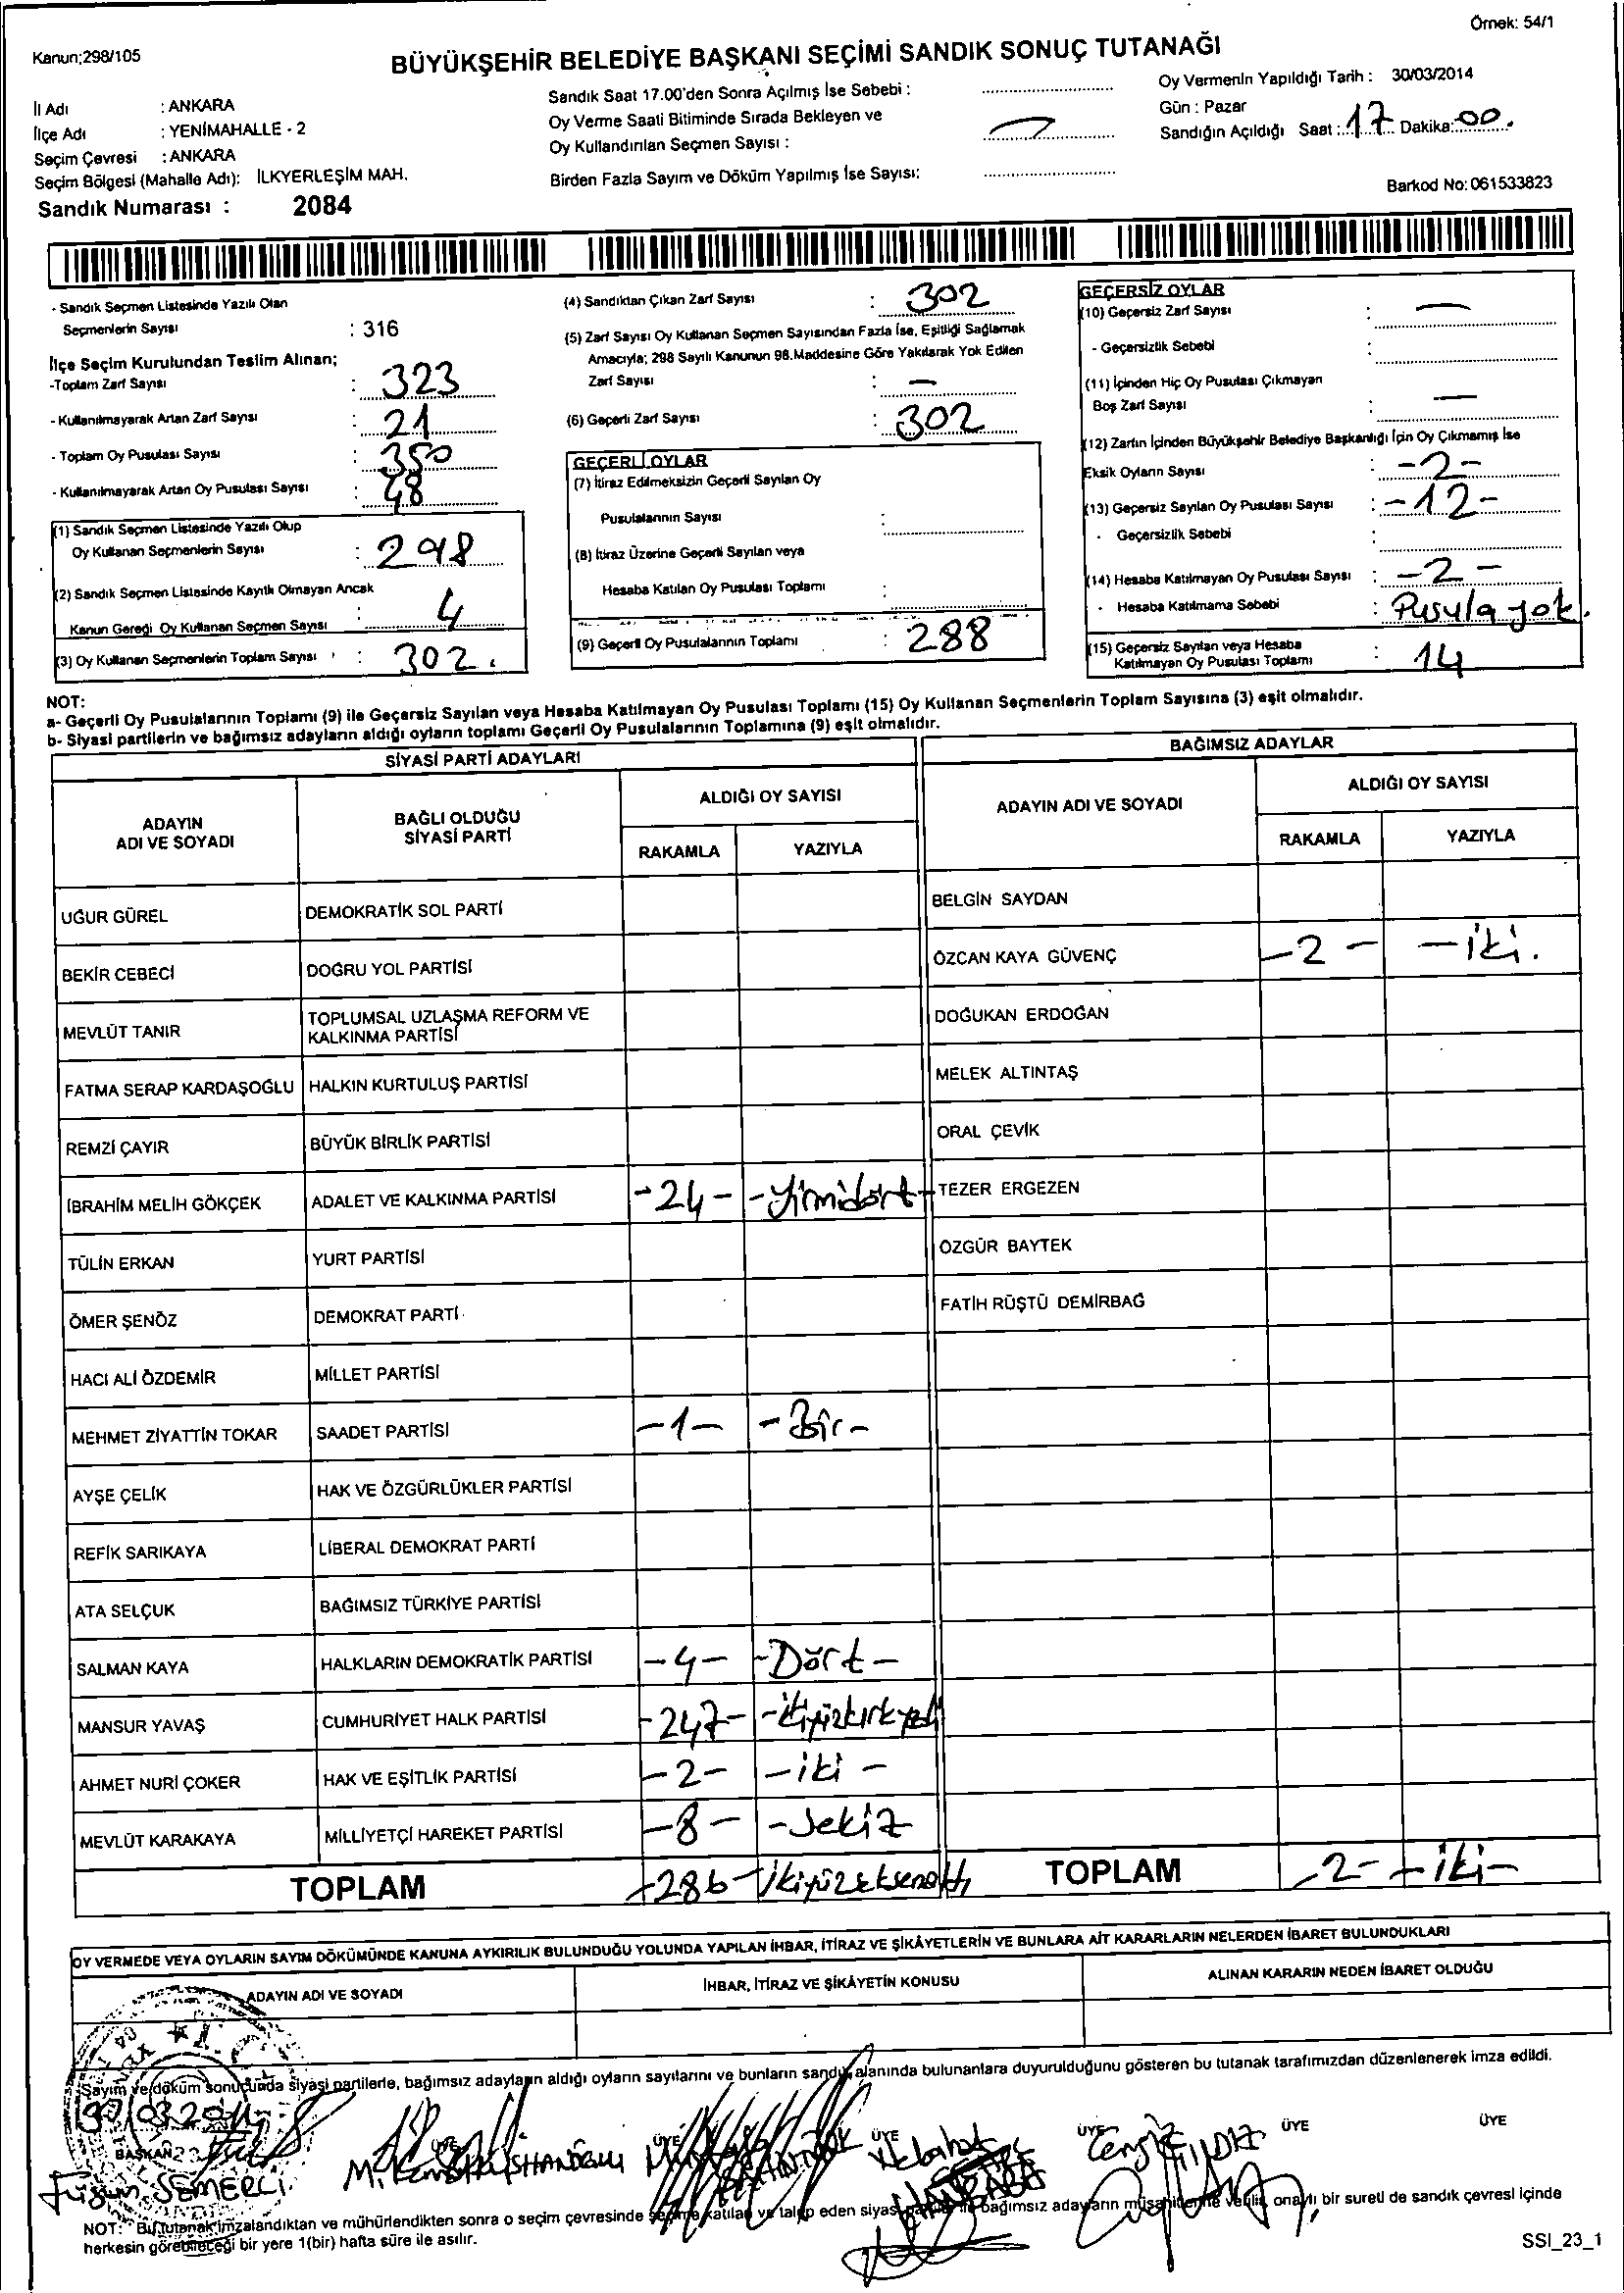 Örnek: 54/1
Kanun;298/105
BÜYÜKŞEHİR BELEDİYE BAŞKANI SEÇİMİ SANDIK SONUÇ TUTANAĞI
İl Adı : ANKARA
İlçe Adı : YENİMAHALLE - 2
Seçim Çevresi : ANKARA
Seçim Bölgesi (Mahalle Adı): İLKYERLEŞİM MAH.
Sandık Numarası : 2084
Sandık Saat 17.00'den Sonra Açılmış İse Sebebi :
Oy Verme Saati Bitiminde Sırada Bekleyen ve
Oy Kullandırılan Seçmen Sayısı :
Birden Fazla Sayım ve Döküm Yapılmış İse Sayısı:
Oy Vermenin Yapıldığı Tarih : 30/03/2014
Gün : Pazar
Sandığın Açıldığı Saat : 17 Dakika: 00.
Barkod No: 061533823
- Sandık Seçmen Listesinde Yazılı Olan
Seçmenlerin Sayısı : 316
İlçe Seçim Kurulundan Teslim Alınan;
-Toplam Zarf Sayısı : 323
- Kullanılmayarak Artan Zarf Sayısı : 21
- Toplam Oy Pusulası Sayısı : 350
- Kullanılmayarak Artan Oy Pusulası Sayısı : 48
(1) Sandık Seçmen Listesinde Yazılı Olup
Oy Kullanan Seçmenlerin Sayısı : 298
(2) Sandık Seçmen Listesinde Kayıtlı Olmayan Ancak
Kanun Gereği Oy Kullanan Seçmen Sayısı : 4
(3) Oy Kullanan Seçmenlerin Toplam Sayısı : 302.
(4) Sandıktan Çıkan Zarf Sayısı : 302
(5) Zarf Sayısı Oy Kullanan Seçmen Sayısından Fazla İse, Eşitliği Sağlamak
Amacıyla; 298 Sayılı Kanunun 98.Maddesine Göre Yakılarak Yok Edilen
Zarf Sayısı : —
(6) Geçerli Zarf Sayısı : 302
GEÇERLİ OYLAR
(7) İtiraz Edilmeksizin Geçerli Sayılan Oy
Pusulalarının Sayısı :
(8) İtiraz Üzerine Geçerli Sayılan veya
Hesaba Katılan Oy Pusulası Toplamı :
(9) Geçerli Oy Pusulalarının Toplamı : 288
GEÇERSİZ OYLAR
(10) Geçersiz Zarf Sayısı : —
- Geçersizlik Sebebi :
(11) İçinden Hiç Oy Pusulası Çıkmayan
Boş Zarf Sayısı : —
(12) Zarfın İçinden Büyükşehir Belediye Başkanlığı İçin Oy Çıkmamış İse
Eksik Oyların Sayısı : -2-
(13) Geçersiz Sayılan Oy Pusulası Sayısı : -12-
- Geçersizlik Sebebi :
(14) Hesaba Katılmayan Oy Pusulası Sayısı : -2-
- Hesaba Katılmama Sebebi : Pusula yok.
(15) Geçersiz Sayılan veya Hesaba
Katılmayan Oy Pusulası Toplamı : 14
NOT:
a- Geçerli Oy Pusulalarının Toplamı (9) ile Geçersiz Sayılan veya Hesaba Katılmayan Oy Pusulası Toplamı (15) Oy Kullanan Seçmenlerin Toplam Sayısına (3) eşit olmalıdır.
b- Siyasi partilerin ve bağımsız adayların aldığı oyların toplamı Geçerli Oy Pusulalarının Toplamına (9) eşit olmalıdır.
SİYASİ PARTİ ADAYLARI
ADAYIN ADI VE SOYADI BAĞLI OLDUĞU SİYASİ PARTİ ALDIĞI OY SAYISI
RAKAMLA YAZIYLA
UĞUR GÜREL DEMOKRATİK SOL PARTİ
BEKİR CEBECİ DOĞRU YOL PARTİSİ
MEVLÜT TANIR TOPLUMSAL UZLAŞMA REFORM VE KALKINMA PARTİSİ
FATMA SERAP KARDAŞOĞLU HALKIN KURTULUŞ PARTİSİ
REMZİ ÇAYIR BÜYÜK BİRLİK PARTİSİ
İBRAHİM MELİH GÖKÇEK ADALET VE KALKINMA PARTİSİ -24- -Yirmidört-
TÜLİN ERKAN YURT PARTİSİ
ÖMER ŞENÖZ DEMOKRAT PARTİ
HACI ALİ ÖZDEMİR MİLLET PARTİSİ
MEHMET ZİYATTİN TOKAR SAADET PARTİSİ -1- -Bir-
AYŞE ÇELİK HAK VE ÖZGÜRLÜKLER PARTİSİ
REFİK SARIKAYA LİBERAL DEMOKRAT PARTİ
ATA SELÇUK BAĞIMSIZ TÜRKİYE PARTİSİ
SALMAN KAYA HALKLARIN DEMOKRATİK PARTİSİ -4- -Dört-
MANSUR YAVAŞ CUMHURİYET HALK PARTİSİ -247- -ikiyüzkırkyedi
AHMET NURİ ÇOKER HAK VE EŞİTLİK PARTİSİ -2- -iki-
MEVLÜT KARAKAYA MİLLİYETÇİ HAREKET PARTİSİ -8- -Sekiz
TOPLAM -286- İkiyüzseksenaltı
BAĞIMSIZ ADAYLAR
ADAYIN ADI VE SOYADI ALDIĞI OY SAYISI
RAKAMLA YAZIYLA
BELGİN SAYDAN
ÖZCAN KAYA GÜVENÇ -2- -iki.
DOĞUKAN ERDOĞAN
MELEK ALTINTAŞ
ORAL ÇEVİK
TEZER ERGEZEN
ÖZGÜR BAYTEK
FATİH RÜŞTÜ DEMİRBAĞ
TOPLAM -2- -iki-
OY VERMEDE VEYA OYLARIN SAYIM DÖKÜMÜNDE KANUNA AYKIRILIK BULUNDUĞU YOLUNDA YAPILAN İHBAR, İTİRAZ VE ŞİKÂYETLERİN VE BUNLARA AİT KARARLARIN NELERDEN İBARET BULUNDUKLARI
ADAYIN ADI VE SOYADI İHBAR, İTİRAZ VE ŞİKÂYETİN KONUSU ALINAN KARARIN NEDEN İBARET OLDUĞU
Sayım ve döküm sonucunda siyasi partilerle, bağımsız adayların aldığı oyların sayılarını ve bunların sandık alanında bulunanlara duyurulduğunu gösteren bu tutanak tarafımızdan düzenlenerek imza edildi.
30/03.2014
BAŞKAN ÜYE ÜYE ÜYE ÜYE ÜYE
Füsun SEMERCİ
Cengiz YILDIZ
NOT: Bu tutanak imzalandıktan ve mühürlendikten sonra o seçim çevresinde seçime katılan ve talep eden siyasi partiler ile bağımsız adayların müşahitlerine verilir, onaylı bir sureti de sandık çevresi içinde
herkesin görebileceği bir yere 1(bir) hafta süre ile asılır.
SSI_23_1